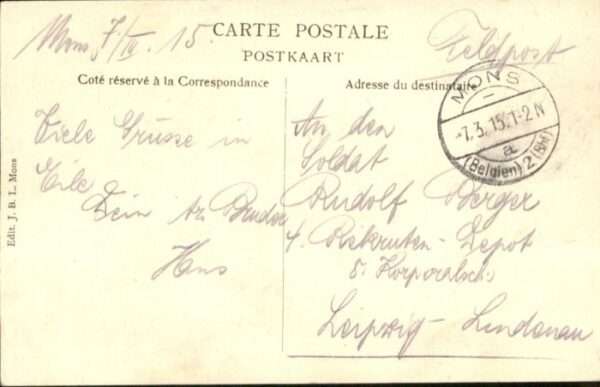 Mons, 7/III. 15.
CARTE POSTALE
POSTKAART
Feldpost
Coté réservé à la Correspondance
Adresse du destinataire
MONS
-7.3.15.1-2N
a
(Belgien) 2 (BH)
Viele Grüsse in
Eile
Dein tr. Bruder
Hans
An den
Soldat
Rudolf Berger
4. Rekruten-Depot
8. Korporalsch.
Leipzig-Lindenau
Edit. J. B. L. Mons